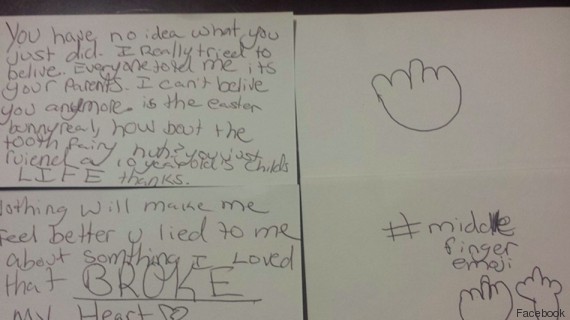 You have no idea what you
just did. I Really tried to
belive. Everyone told me its
your Parents. I can't belive
you anymore. is the easter
bunny real, how bout the
tooth fairy huh? you just
ruiend a 10 year old's childs
LIFE thanks.
Nothing will make me
feel better y lied to me
about somthing I Loved
that BROKE
my Heart
#middle
finger
emoji
Facebook